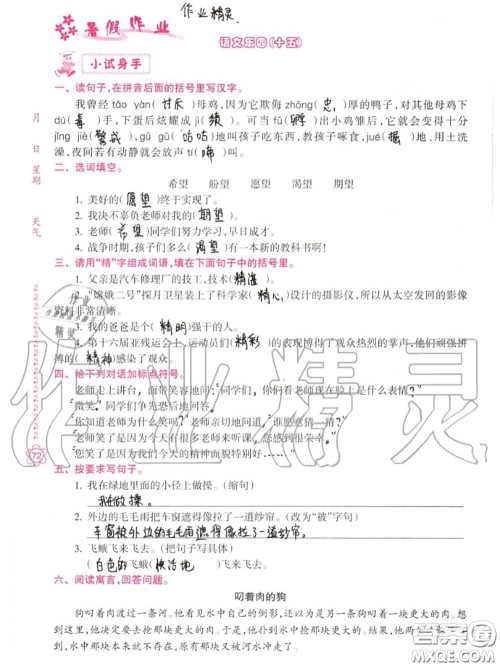 作业精灵.
暑假作业
语文乐园(十五)
小试身手
月 日 星期 天气
一、读句子,在拼音后面的括号里写汉字。
我曾经 tǎo yàn( 讨厌 )母鸡,因为它欺侮 zhōng( 忠 )厚的鸭子,对其他母鸡下
dú( 毒 )手,下蛋后炫耀成 jì( 绩 )。可当 fū( 孵 )出小鸡雏后,它就会变得十分
jǐng jiè( 警戒 ),gū gū( 咕咕 )地叫孩子吃东西,教孩子啄食,jué( 掘 )地,用土洗
澡,夜间若有动静就会放声 tí( 啼 )叫。
二、选词填空。
希望 盼望 愿望 渴望 期望
1. 美好的( 愿望 )终于实现了。
2. 我决不辜负老师对我的( 期望 )。
3. 老师( 希望 )同学们努力学习,早日成才。
4. 战争时期,孩子们多么( 渴望 )有一本新的教科书啊!
三、请用“精”字组成词语,填在下面句子中的括号里。
1. 父亲是汽车修理厂的技工,技术( 精湛 )。
2. “嫦娥二号”探月卫星装上了科学家( 精心 )设计的摄影仪,所以从太空发回的影像
资料非常清晰。
3. 我的爸爸是个( 精明 )强干的人。
4. 第十六届亚残运会上,运动员们( 精彩 )的表现博得了观众热烈的掌声,他们顽强拼
搏的( 精神 )感染了观众。
四、给下列对话加标点符号。
老师走上讲台,面带笑容地问:“同学们,你们看老师现在脸上是什么表情?”
“微笑。”同学们争先恐后地回答。
“你知道老师为什么笑吗?”老师亲切地问,“谁愿意猜一猜?”
“老师笑了是因为今天有很多老师来听课,您感到很高兴。”
“您笑是因为我们今天的精神面貌特别好……”
72
五、按要求写句子。
1. 我在绿地里面的小径上做操。(缩句)
我做操。
2. 外边的毛毛雨把车窗遮得像拉了一道纱帘。(改为“被”字句)
车窗被外边的毛毛雨遮得像拉了一道纱帘。
3. 飞蛾飞来飞去。(把句子写具体)
( 白色的 )飞蛾( 快活地 )飞来飞去。
六、阅读寓言,回答问题。
叼着肉的狗
狗叼着肉渡过一条河。他看见水中自己的倒影,还以为是另一条狗叼着一块更大的肉。想
到这里,他决定要去抢那块更大的肉。于是,他扑到水中抢那块更大的肉。结果,他两块肉都没
得到,水中那块本来就不存在,原有那块又被河水冲走了。
作业精灵
答案圈
MXQE.COM